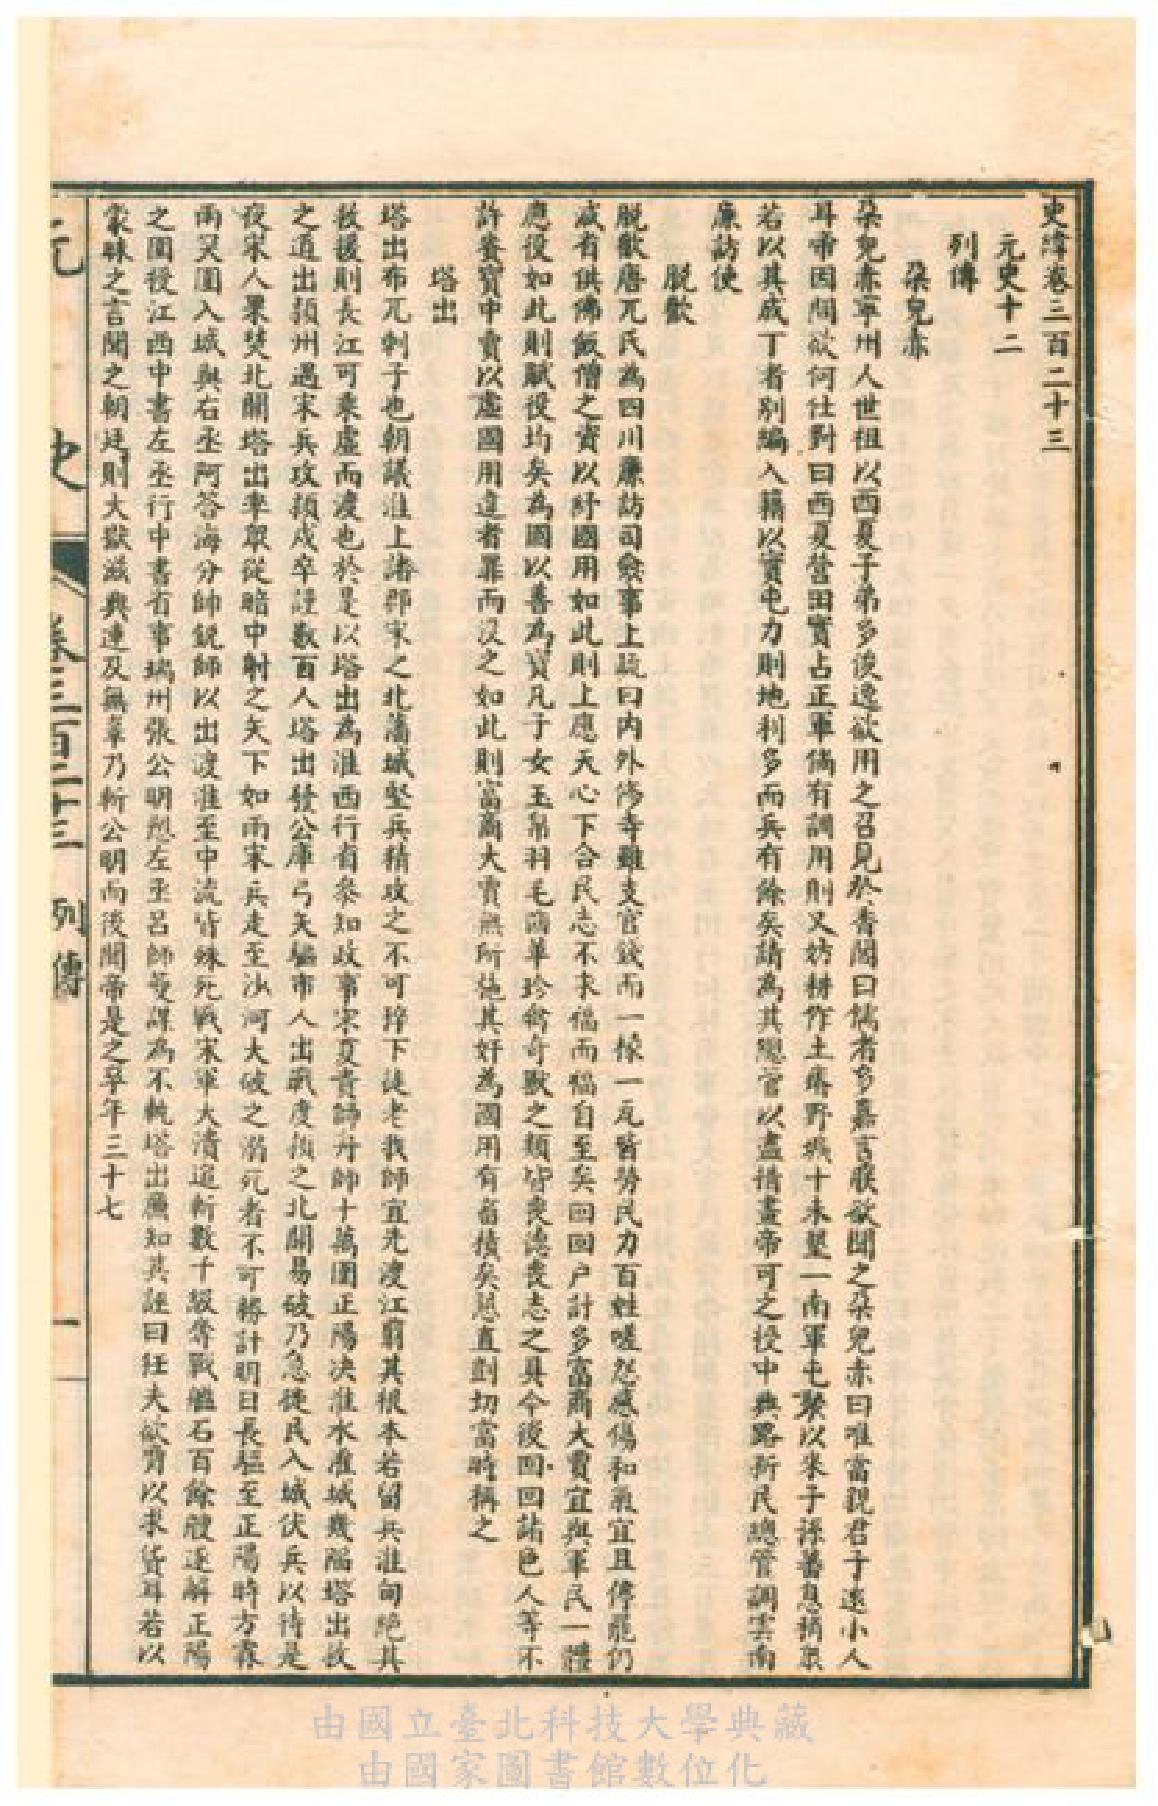 史緯卷三百二十三
元史十二
列傳
朶兒赤
朶兒赤寧州人世祖以西夏子弟多俊逸欲用之召見於香閣曰儒者多嘉言朕欲聞之朶兒赤曰唯當親君子遠小人
耳帝因問欲何仕對曰西夏營田實占正軍倘有調用則又妨耕作土瘠野壙十未墾一南軍屯聚以來子孫蕃息稍眾
若以其成丁者別編入籍以實屯力則地利多而兵有餘矣請為其總管以盡措畫帝可之授中興路新民總管調雲南
廉訪使
脫歡
脫歡唐兀氏為四川廉訪司僉事上疏曰內外佛寺雖支官錢而一椽一瓦皆勞民力百姓嗟怨感傷和氣宜且停罷仍
減有供佛飯僧之資以紓國用如此則上應天心下合民志不求福而福自至矣回回戶計多富商大賈宜與軍民一體
應役如此則賦役均矣為國以善為寶凡子女玉帛羽毛齒革珍禽奇獸之類皆喪德喪志之具今後回回諸色人等不
許賫寶中賣以虛國用違者罪而沒之如此則富商大賈無所施其奸為國用有畜積矣懇直剴切當時稱之
塔出
塔出布兀剌子也朝議淮上諸郡宋之北藩城堅兵精攻之不可猝下徒老我師宜先渡江翦其根本若留兵淮甸絕其
救援則長江可乘虛而渡也於是以塔出為淮西行省參知政事宋夏貴師舟師十萬圍正陽决淮水灌城幾陷塔出救
之道出潁州遇宋兵攻潁戍卒謹數百人塔出發公庫弓矢驅市人出戰度潁之北關易破乃急徙民入城伏兵以待是
夜宋人果焚北關塔出率眾從暗中射之矢下如雨宋兵走至沙河大破之溺死者不可勝計明日長驅至正陽時方霖
雨突圍入城與右丞阿答海分帥銳師以出渡淮至中流皆殊死戰宋軍大潰追斬數千級奪戰艦石百餘艘遂解正陽
之圍授江西中書左丞行中書省事瑞州張公明愬左丞呂師夔謀為不軌塔出廉知其誣曰狂夫欲脅以求貨耳若以
蒙昧之言聞之朝廷則大獄滋興連及無辜乃斬公明而後聞帝是之卒年三十七
元 史 卷三百二十三 列傳 一
由國立臺北科技大學典藏
由國家圖書館數位化